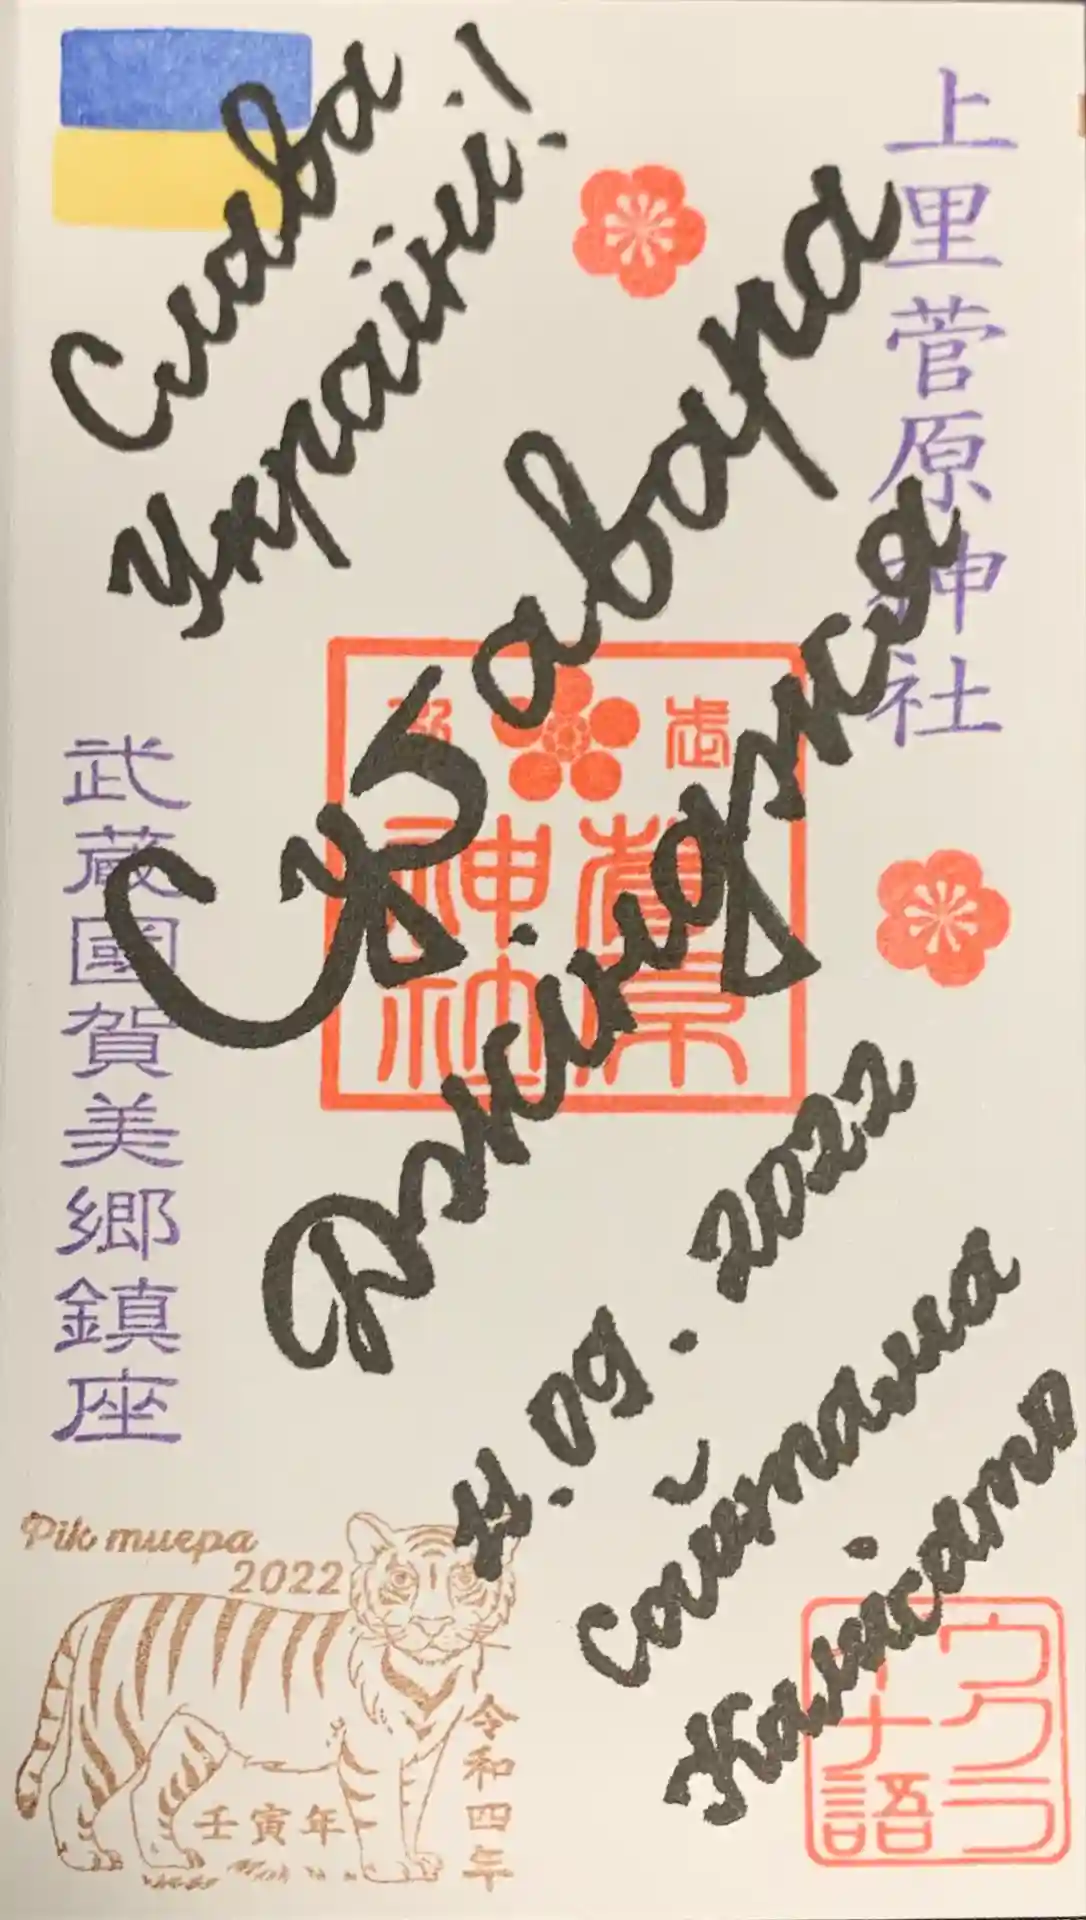 上里菅原神社
Слава
Україні!
Суґавара
Дзіндзюся
11.09.2022
Сайтама
Камісато
武蔵國賀美郷鎮座
Рік тигра
2022
令和四年
壬寅年
ウクライナ語